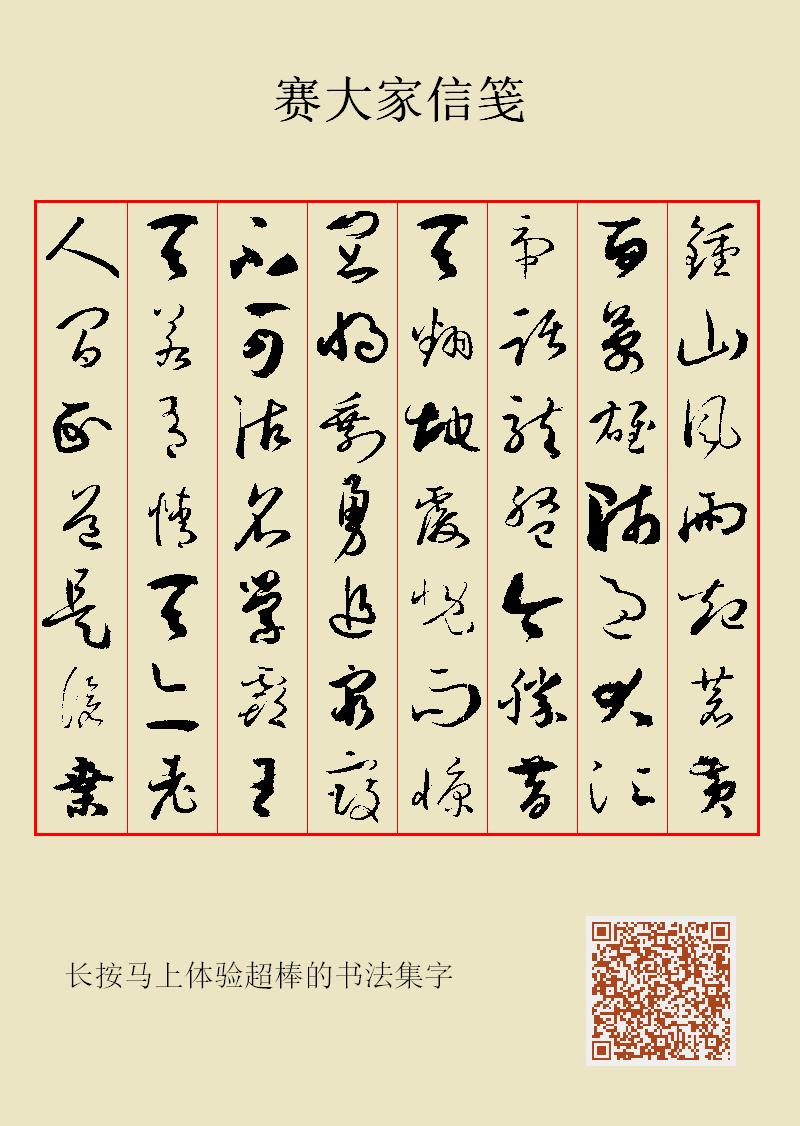 赛大家信笺
鍾山風雨起蒼黄
百萬雄師過大江
虎踞龍盤今勝昔
天翻地覆慨而慷
宜將剩勇追窮寇
不可沽名學霸王
天若有情天亦老
人間正道是滄桑
长按马上体验超棒的书法集字